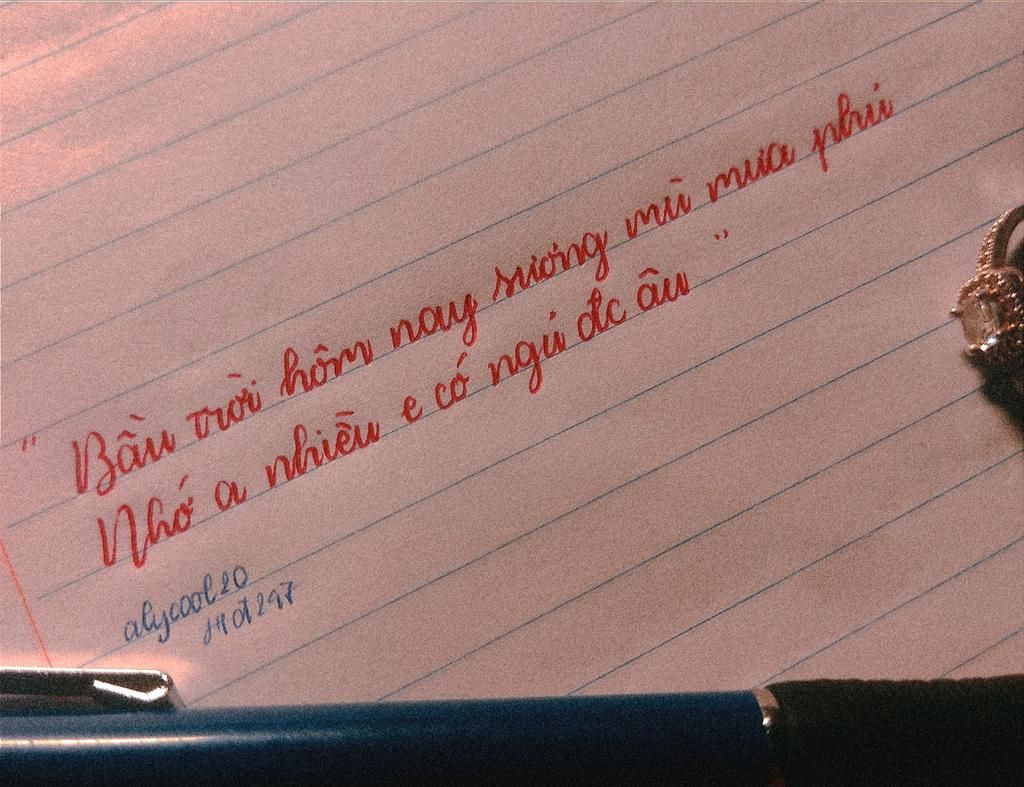 " Bầu trời hôm nay sương mù mưa phủ
Nhớ a nhiều e có ngủ đc âu "
alycool20